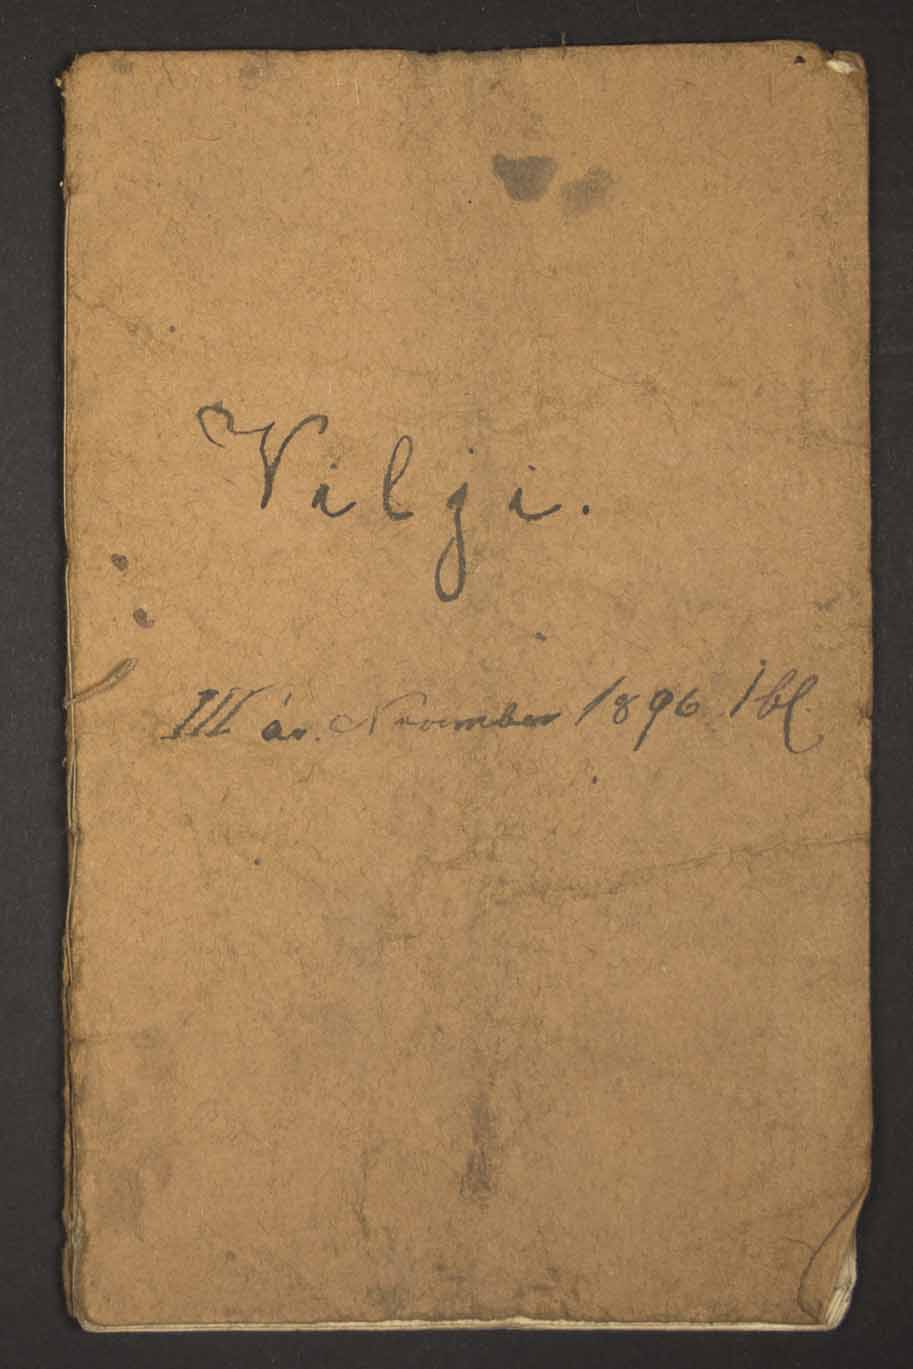 Vilji.
III ár. November 1896 1 bl.